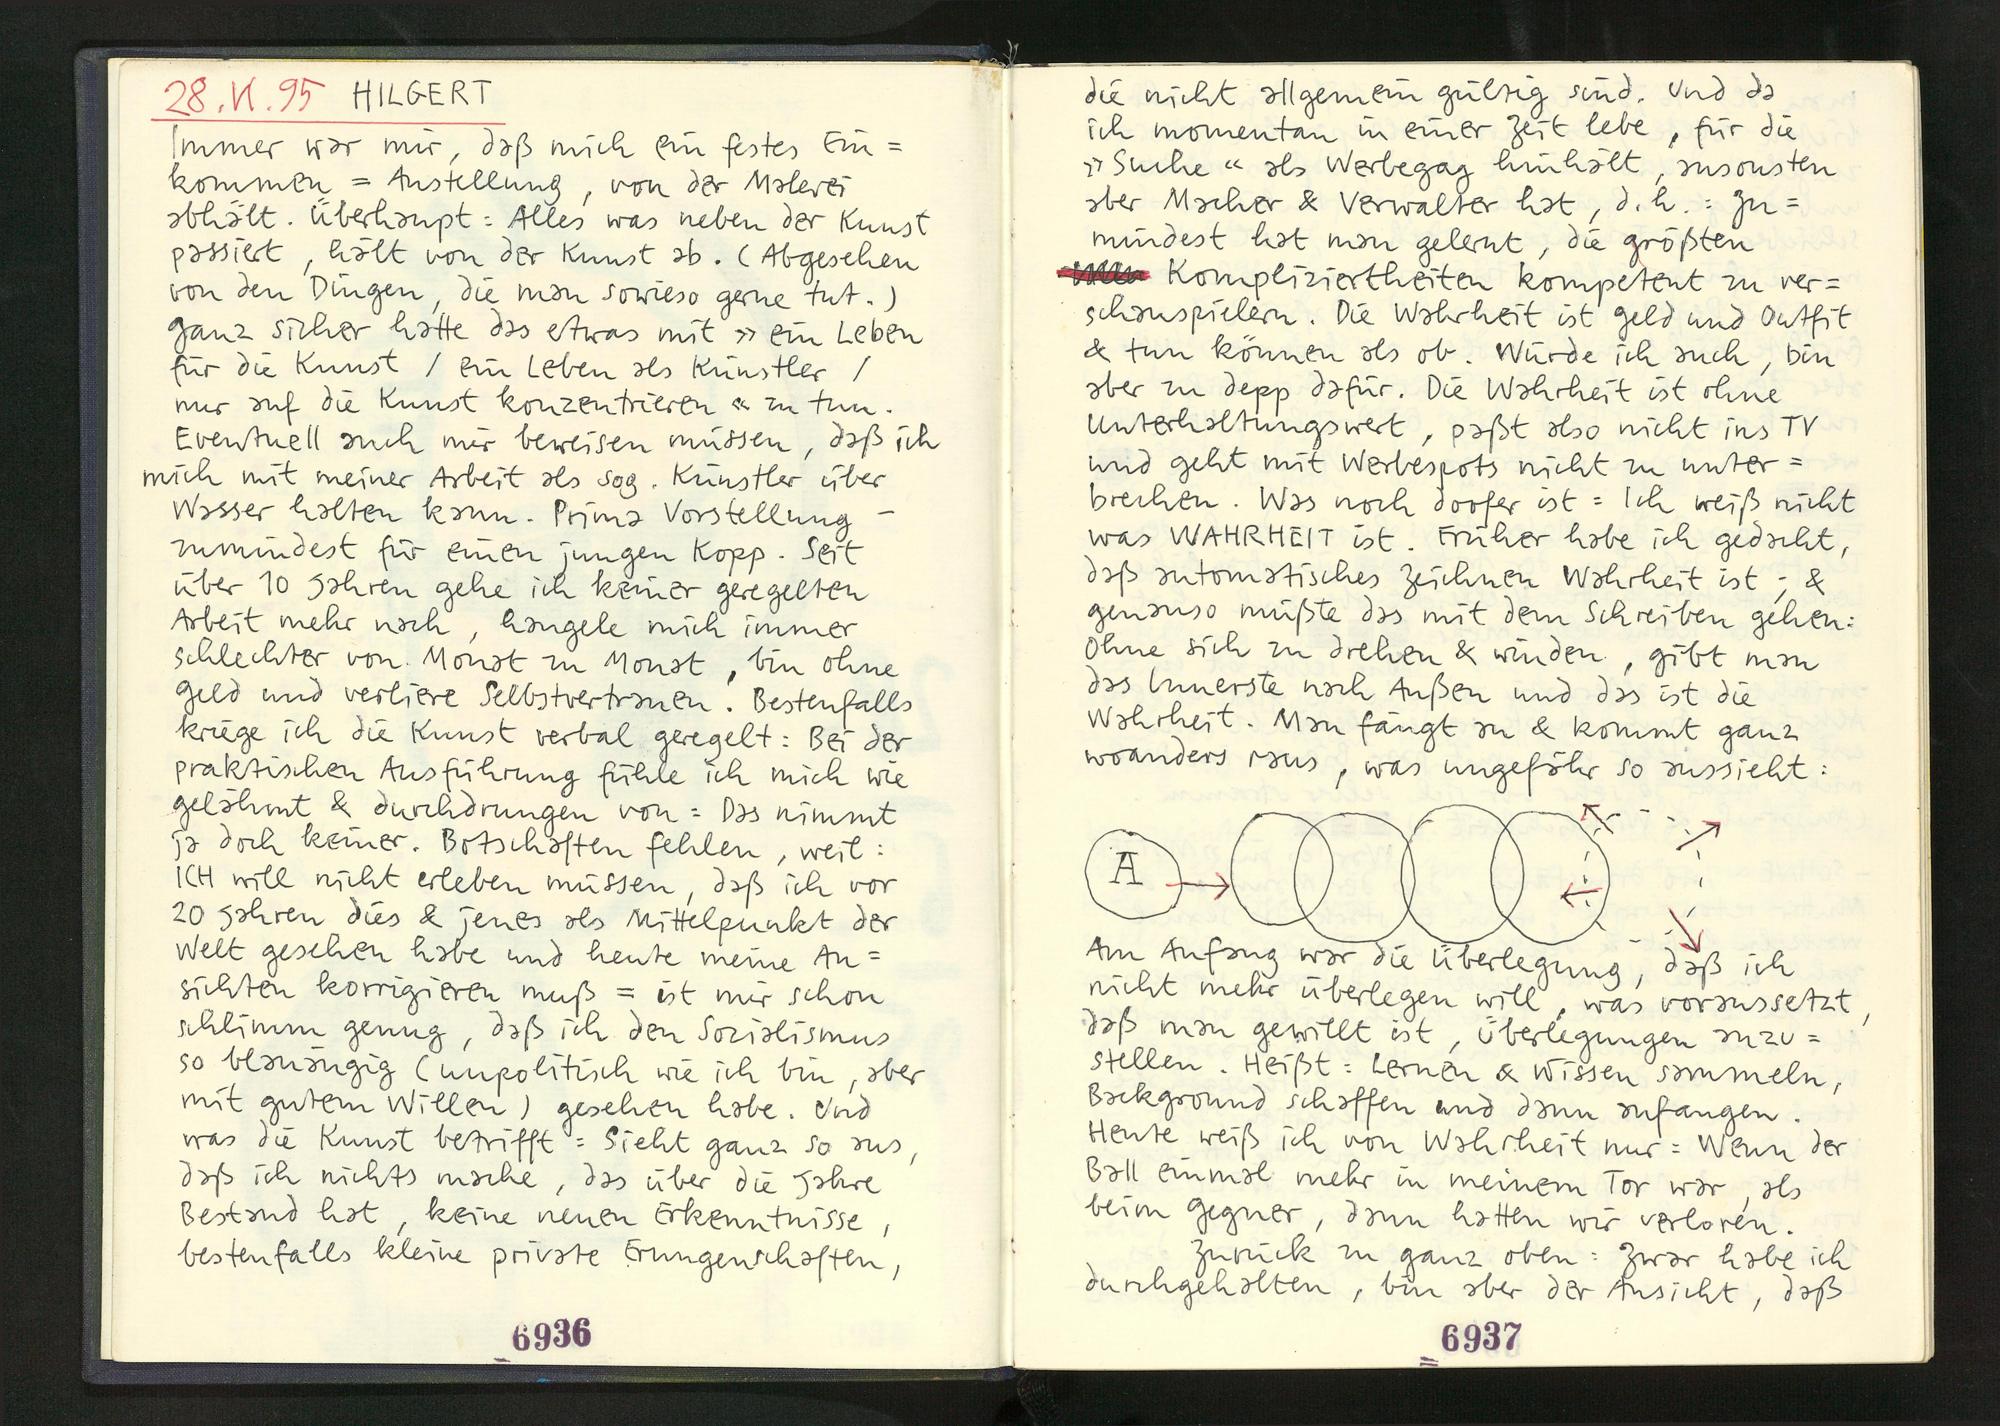 28.VI.95 HILGERT
Immer war mir, daß mich ein festes Ein=
kommen = Anstellung, von der Malerei
abhält. Überhaupt: Alles was neben der Kunst
passiert, hält von der Kunst ab. (Abgesehen
von den Dingen, die man sowieso gerne tut.)
Ganz sicher hatte das etwas mit » ein Leben
für die Kunst / ein Leben als Künstler /
nur auf die Kunst konzentrieren « zu tun.
Eventuell auch mir beweisen müssen, daß ich
mich mit meiner Arbeit als sog. Künstler über
Wasser halten kann. Prima Vorstellung –
zumindest für einen jungen Kopp. Seit
über 10 Jahren gehe ich keiner geregelten
Arbeit mehr nach, hangele mich immer
schlechter von Monat zu Monat, bin ohne
Geld und verliere Selbstvertrauen. Bestenfalls
kriege ich die Kunst verbal geregelt: Bei der
praktischen Ausführung fühle ich mich wie
gelähmt & durchdrungen von: Das nimmt
ja doch keiner. Botschaften fehlen, weil:
ICH will nicht erleben müssen, daß ich vor
20 Jahren dies & jenes als Mittelpunkt der
Welt gesehen habe und heute meine An=
sichten korrigieren muß = ist mir schon
schlimm genug, daß ich den Sozialismus
so blauäugig (unpolitisch wie ich bin, aber
mit gutem Willen) gesehen habe. Und
was die Kunst betrifft: Sieht ganz so aus,
daß ich nichts mache, das über die Jahre
Bestand hat, keine neuen Erkenntnisse,
bestenfalls kleine private Erungenschaften,
6936
die nicht allgemein gültig sind. Und da
ich momentan in einer Zeit lebe, für die
» Suche « als Werbegag hinhält, ansonsten
aber Macher & Verwalter hat, d.h.: Zu=
mindest hat man gelernt, die größten
Kompliziertheiten kompetent zu ver=
schauspielern. Die Wahrheit ist Geld und Outfit
& tun können als ob. Würde ich auch, bin
aber zu depp dafür. Die Wahrheit ist ohne
Unterhaltungswert, paßt also nicht ins TV
und geht mit Werbespots nicht zu unter=
brechen. Was noch doofer ist = Ich weiß nicht
was WAHRHEIT ist. Früher habe ich gedacht,
daß automatisches Zeichnen Wahrheit ist; &
genauso müßte das mit dem Schreiben gehen:
Ohne sich zu drehen & winden, gibt man
das Innerste nach Außen und das ist die
Wahrheit. Man fängt an & kommt ganz
woanders raus, was ungefähr so aussieht:
A
Am Anfang war die Überlegung, daß ich
nicht mehr überlegen will, was voraussetzt,
daß man gewillt ist, Überlegungen anzu=
stellen. Heißt: Lernen & Wissen sammeln,
Background schaffen und dann anfangen.
Heute weiß ich von Wahrheit nur: Wenn der
Ball einmal mehr in meinem Tor war, als
beim Gegner, dann hatten wir verloren.
Zurück zu ganz oben: Zwar habe ich
durchgehalten, bin aber der Ansicht, daß
6937